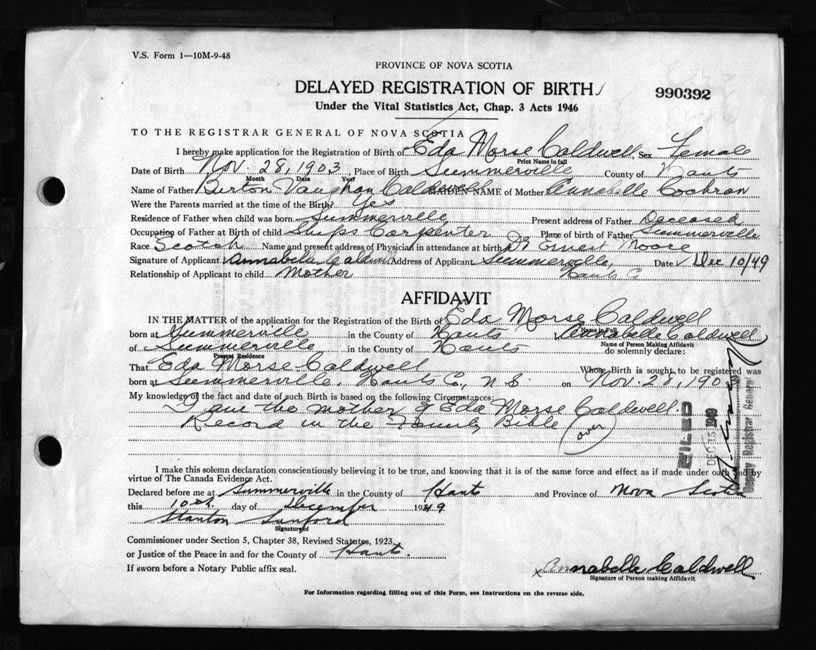 V.S. Form 1—10M-9-48
PROVINCE OF NOVA SCOTIA
DELAYED REGISTRATION OF BIRTH
990392
Under the Vital Statistics Act, Chap. 3 Acts 1946
TO THE REGISTRAR GENERAL OF NOVA SCOTIA
I hereby make application for the Registration of Birth of Eda Morse Caldwell, Sex Female
Print Name in full
Date of Birth Nov. 28, 1903, Place of Birth Summerville County of Hants
Month Date Year
Name of Father Burton Vaughan Caldwell MAIDEN NAME of Mother Annabelle Cochran
Were the Parents married at the time of the Birth? Yes
Residence of Father when child was born Summerville Present address of Father Deceased
Occupation of Father at Birth of child Ships Carpenter Place of birth of Father Summerville
Race Scotch Name and present address of Physician in attendance at birth Dr Ernest Moore
Signature of Applicant Annabelle Caldwell Address of Applicant Summerville, Date Dec 10/49
Relationship of Applicant to child Mother Hants Co
AFFIDAVIT
IN THE MATTER of the application for the Registration of Birth of Eda Morse Caldwell
born at Summerville in the County of Hants Annabelle Caldwell
Name of Person Making Affidavit
of Summerville in the County of Hants do solemnly declare:
Present Residence
That Eda Morse Caldwell Whose Birth is sought to be registered was
born at Summerville, Hants Co., N.S. on Nov. 28, 190
My knowledge of the fact and date of such Birth is based on the following Circumstances:
I am the mother of Eda Morse Caldwell.
Record in the Family Bible (over)
FILED
DEC 15 1949
Deputy Registrar General
I make this solemn declaration conscientiously believing it to be true, and knowing that it is of the same force and effect as if made under oath and by
virtue of The Canada Evidence Act.
Declared before me at Summerville in the County of Hants and Province of Nova Scotia
this 10th day of December 1949
Stanton Sanford
Signature of
Commissioner under Section 5, Chapter 38, Revised Statutes, 1923,
or Justice of the Peace in and for the County of Hants.
If sworn before a Notary Public affix seal.
x Annabelle Caldwell
Signature of Person making Affidavit
For Information regarding filling out of this Form, see instructions on the reverse side.